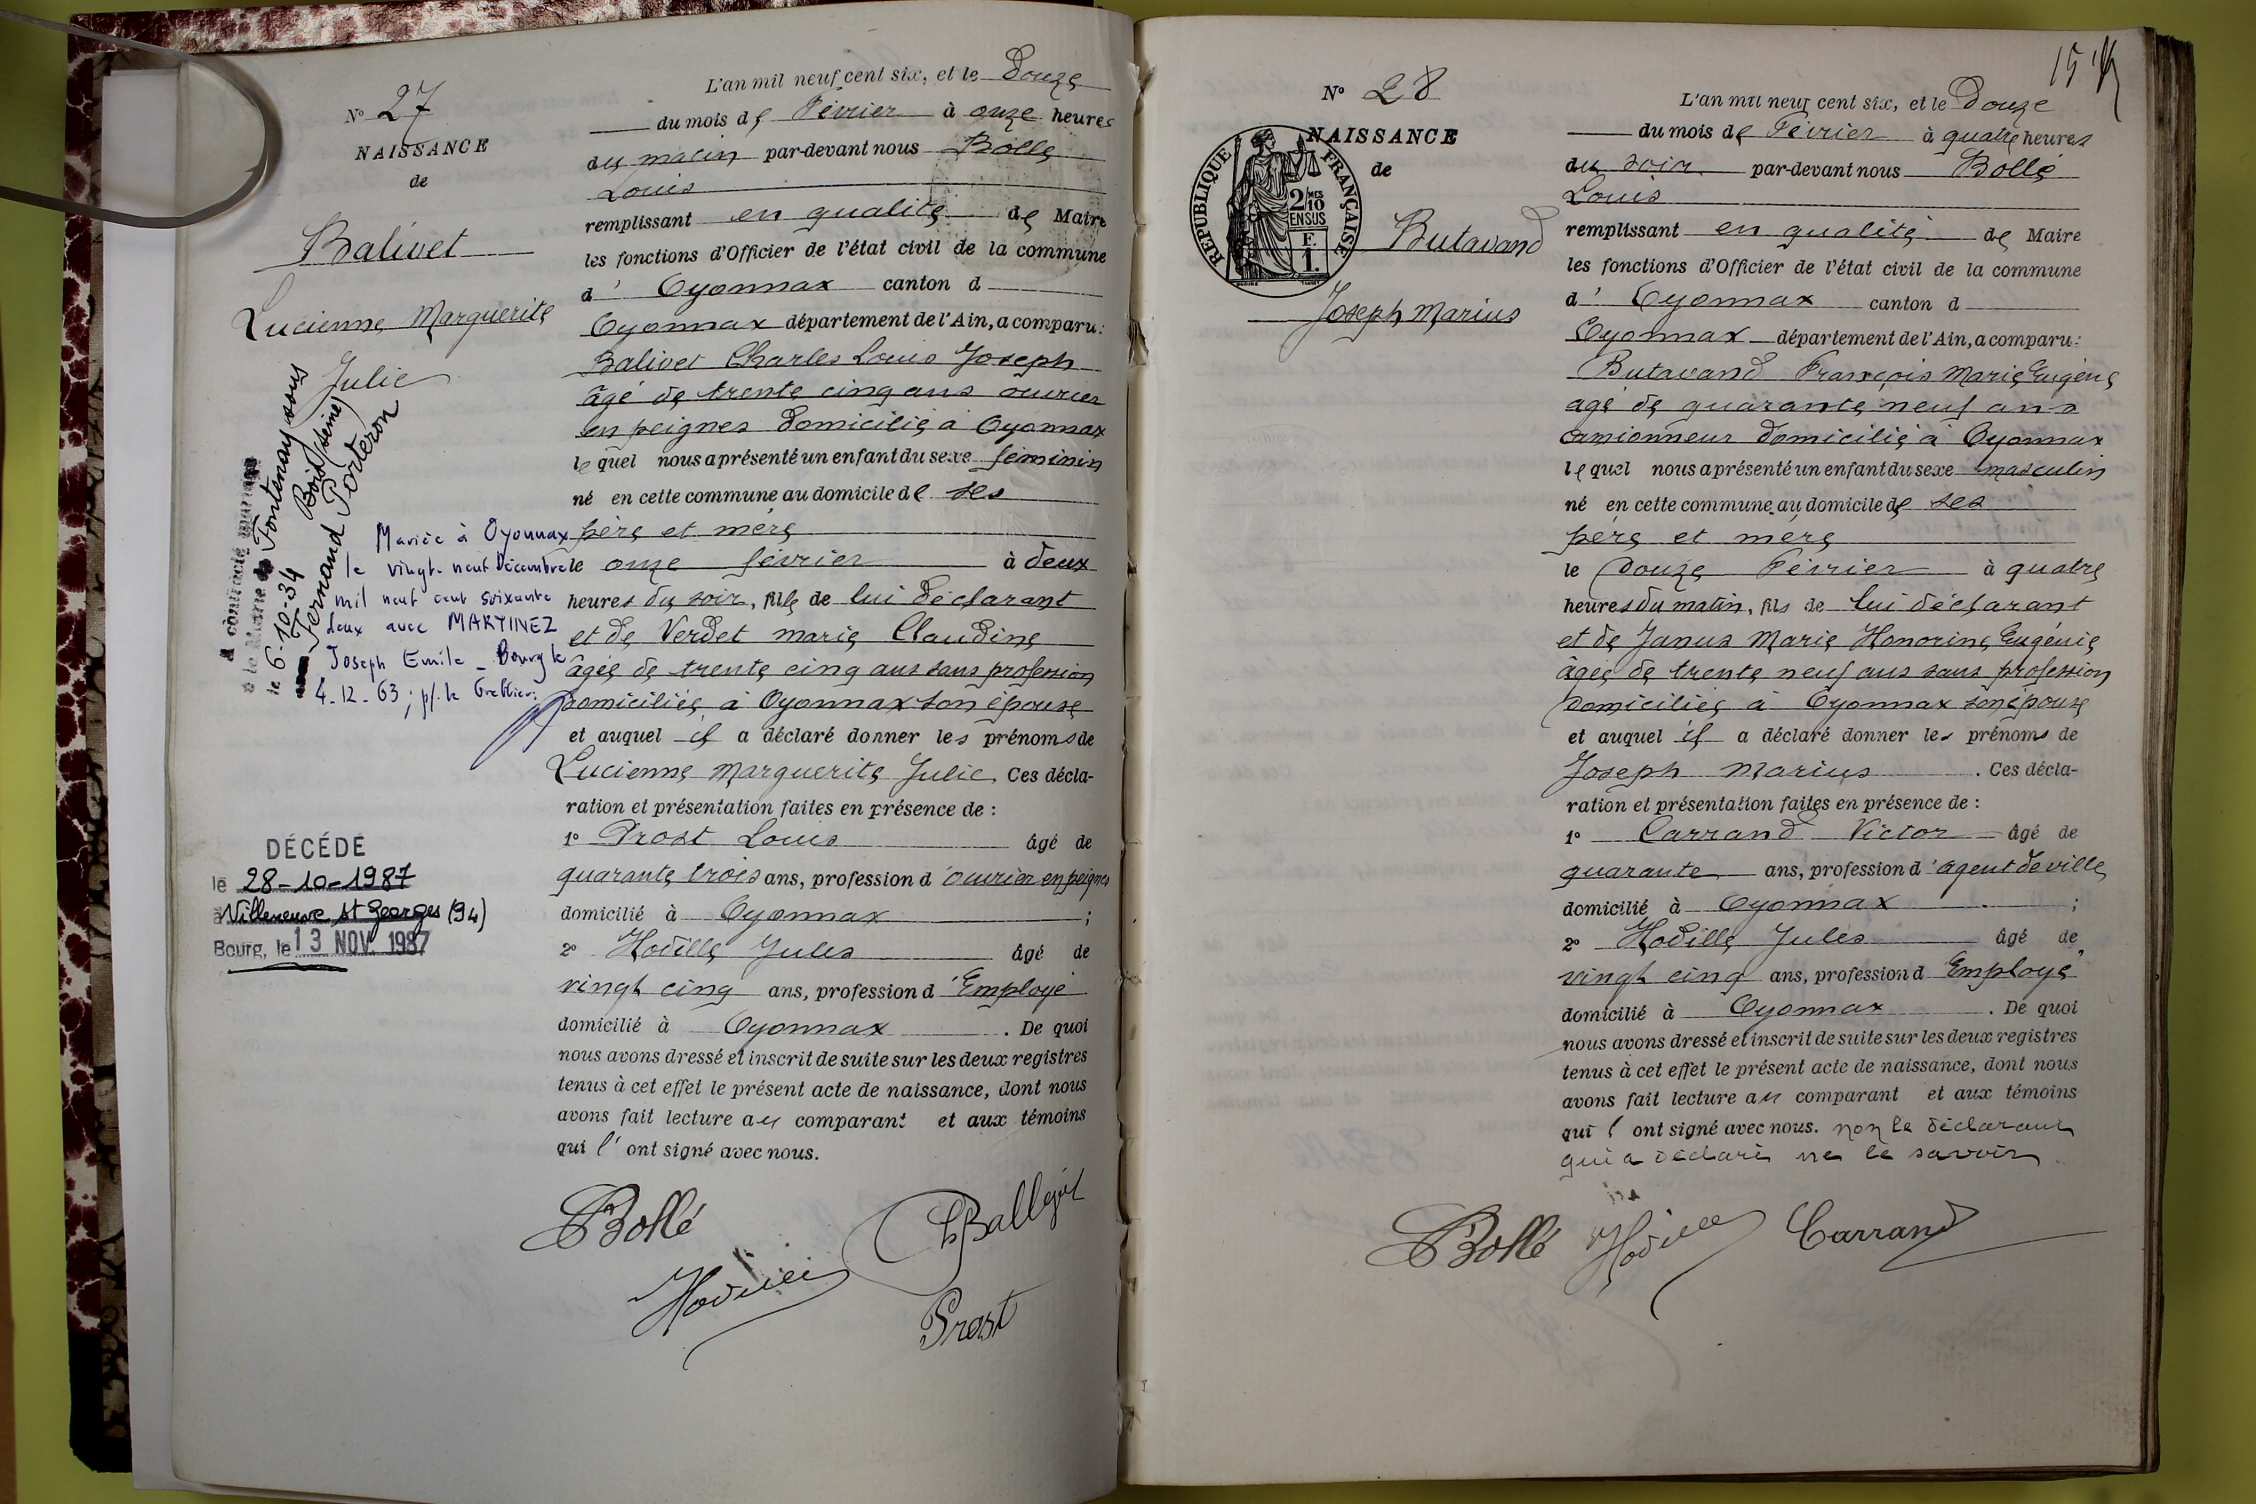 N° 27
NAISSANCE
de
Balivet
Lucienne Marguerite
Julie
A contracté mariage
à la Mairie de Fontenay sous
le 6-10-34 Bois (seine)
Fernand Porteron
Mariée à Oyonnax
le vingt-neuf Décembre
mil neuf cent soixante
deux avec MARTINEZ
Joseph Emile - Bourg le
4-12-63; p/. le Greffier:
DÉCÉDÉ
le 28-10-1987
à Villeneuve St Georges (94)
Bourg, le 13 NOV. 1987
L'an mil neuf cent six, et le Douze
du mois de Février à onze heures
du matin par-devant nous Bollé
Louis
remplissant en qualité de Maire
les fonctions d'Officier de l'état civil de la commune
d' Oyonnax canton d
Oyonnax département de l'Ain, a comparu:
Balivet Charles Louis Joseph
âgé de trente cinq ans ouvrier
en peignes domicilié à Oyonnax
lequel nous a présenté un enfant du sexe féminin
né en cette commune au domicile de ses
père et mère
le onze février à deux
heures du soir, fille de lui déclarant
et de Verdet marie Claudine
âgée de trente cinq ans sans profession
domiciliée à Oyonnax son épouse
et auquel il a déclaré donner les prénoms de
Lucienne Marguerite Julie. Ces décla-
ration et présentation faites en présence de :
1° Prost Louis âgé de
quarante trois ans, profession d'ouvrier en peignes
domicilié à Oyonnax ;
2° Hodille Jules âgé de
vingt cinq ans, profession d'Employé
domicilié à Oyonnax . De quoi
nous avons dressé et inscrit de suite sur les deux registres
tenus à cet effet le présent acte de naissance, dont nous
avons fait lecture au comparant et aux témoins
qui l'ont signé avec nous.
Bollé
Prost
N° 28
NAISSANCE
de
REPUBLIQUE FRANÇAISE
2/10
EN SUS
F.
1.
Butavand
Joseph Marius
L'an mil neuf cent six, et le Douze
du mois de Février à quatre heures
du soir par-devant nous Bollé
Louis
remplissant en qualité de Maire
les fonctions d'Officier de l'état civil de la commune
d' Oyonnax canton d
Oyonnax département de l'Ain, a comparu:
Butavand François Marie Eugène
âgé de quarante neuf ans
camionneur domicilié à Oyonnax
lequel nous a présenté un enfant du sexe masculin
né en cette commune au domicile de ses
père et mère
le Douze Février à quatre
heures du matin, fils de lui déclarant
et de Janus Marie Honorine Eugénie
âgée de trente neuf ans sans profession
domiciliée à Oyonnax son épouse
et auquel il a déclaré donner les prénoms de
Joseph Marius . Ces décla-
ration et présentation faites en présence de :
1° Carrand Victor âgé de
quarante ans, profession d'agent de ville
domicilié à Oyonnax ;
2° Hodille Jules âgé de
vingt cinq ans, profession d'Employé
domicilié à Oyonnax . De quoi
nous avons dressé et inscrit de suite sur les deux registres
tenus à cet effet le présent acte de naissance, dont nous
avons fait lecture au comparant et aux témoins
qui l'ont signé avec nous. non le déclarant
qui a déclaré ne le savoir
Bollé Carrand